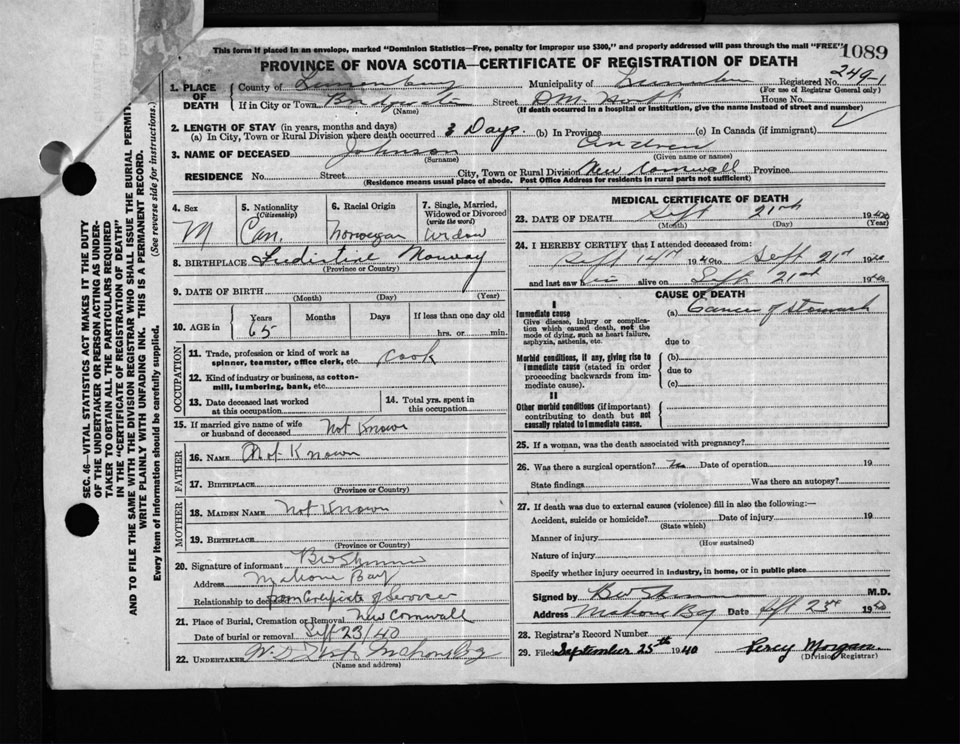 This form if placed in an envelope, marked "Dominion Statistics—Free, penalty for improper use $300," and properly addressed will pass through the mail "FREE"
1089
PROVINCE OF NOVA SCOTIA—CERTIFICATE OF REGISTRATION OF DEATH
249-1
1. PLACE OF DEATH
County of Lunenburg Municipality of Registered No.
(For use of Registrar General only)
If in City or Town Bridgewater Street House No.
(Name) (If death occurred in a hospital or institution, give the name instead of street and number)
2. LENGTH OF STAY (in years, months and days)
(a) In City, Town or Rural Division where death occurred 3 Days. (b) In Province (c) In Canada (if immigrant)
3. NAME OF DECEASED Johnson Andrew
(Surname) (Given name or names)
RESIDENCE No. Street City, Town or Rural Division New Cornwall Province
(Residence means usual place of abode. Post Office Address for residents in rural parts not sufficient)
4. Sex
M
5. Nationality
(Citizenship)
Can.
6. Racial Origin
Norwegian
7. Single, Married, Widowed or Divorced
(write the word)
Widow
8. BIRTHPLACE Norway
(Province or Country)
9. DATE OF BIRTH
(Month) (Day) (Year)
10. AGE in
Years Months Days If less than one day old
65 hrs. or min.
OCCUPATION
11. Trade, profession or kind of work as spinner, teamster, office clerk, etc. Cook
12. Kind of industry or business, as cotton-mill, lumbering, bank, etc.
13. Date deceased last worked at this occupation
14. Total yrs. spent in this occupation
15. If married give name of wife or husband of deceased Not Known
FATHER
16. NAME Not Known
17. BIRTHPLACE
(Province or Country)
MOTHER
18. MAIDEN NAME Not Known
19. BIRTHPLACE
(Province or Country)
20. Signature of informant
Address Mahone Bay
Relationship to deceased
21. Place of Burial, Cremation or Removal New Cornwall
Date of burial or removal Sept 23/40
22. UNDERTAKER Mahone Bay
(Name and address)
MEDICAL CERTIFICATE OF DEATH
23. DATE OF DEATH Sept 21st 1940
(Month) (Day) (Year)
24. I HEREBY CERTIFY that I attended deceased from:
Sept 14th 1940 to Sept 21st 1940
and last saw him alive on Sept 21st 1940
CAUSE OF DEATH
I
Immediate cause
Give disease, injury or complication which caused death, not the mode of dying, such as heart failure, asphyxia, asthenia, etc.
(a) Cancer of Stomach
due to
Morbid conditions, if any, giving rise to immediate cause (stated in order proceeding backwards from immediate cause).
(b)
due to
(c)
II
Other morbid conditions (if important) contributing to death but not causally related to immediate cause.
25. If a woman, was the death associated with pregnancy?
26. Was there a surgical operation? No Date of operation 19
State findings Was there an autopsy?
27. If death was due to external causes (violence) fill in also the following:—
Accident, suicide or homicide? Date of injury 19
(State which)
Manner of injury
(How sustained)
Nature of injury
Specify whether injury occurred in industry, in home, or in public place
Signed by M.D.
Address Mahone Bay Date Sept 23rd 1940
28. Registrar's Record Number
29. Filed September 25th 1940 Percy Morgan
(Division Registrar)
SEC. 46—VITAL STATISTICS ACT MAKES IT THE DUTY
OF THE UNDERTAKER OR PERSON ACTING AS UNDER-
TAKER TO OBTAIN ALL THE PARTICULARS REQUIRED
IN THE "CERTIFICATE OF REGISTRATION OF DEATH"
AND TO FILE THE SAME WITH THE DIVISION REGISTRAR WHO SHALL ISSUE THE BURIAL PERMIT.
WRITE PLAINLY WITH UNFADING INK. THIS IS A PERMANENT RECORD.
Every item of information should be carefully supplied. (See reverse side for instructions.)